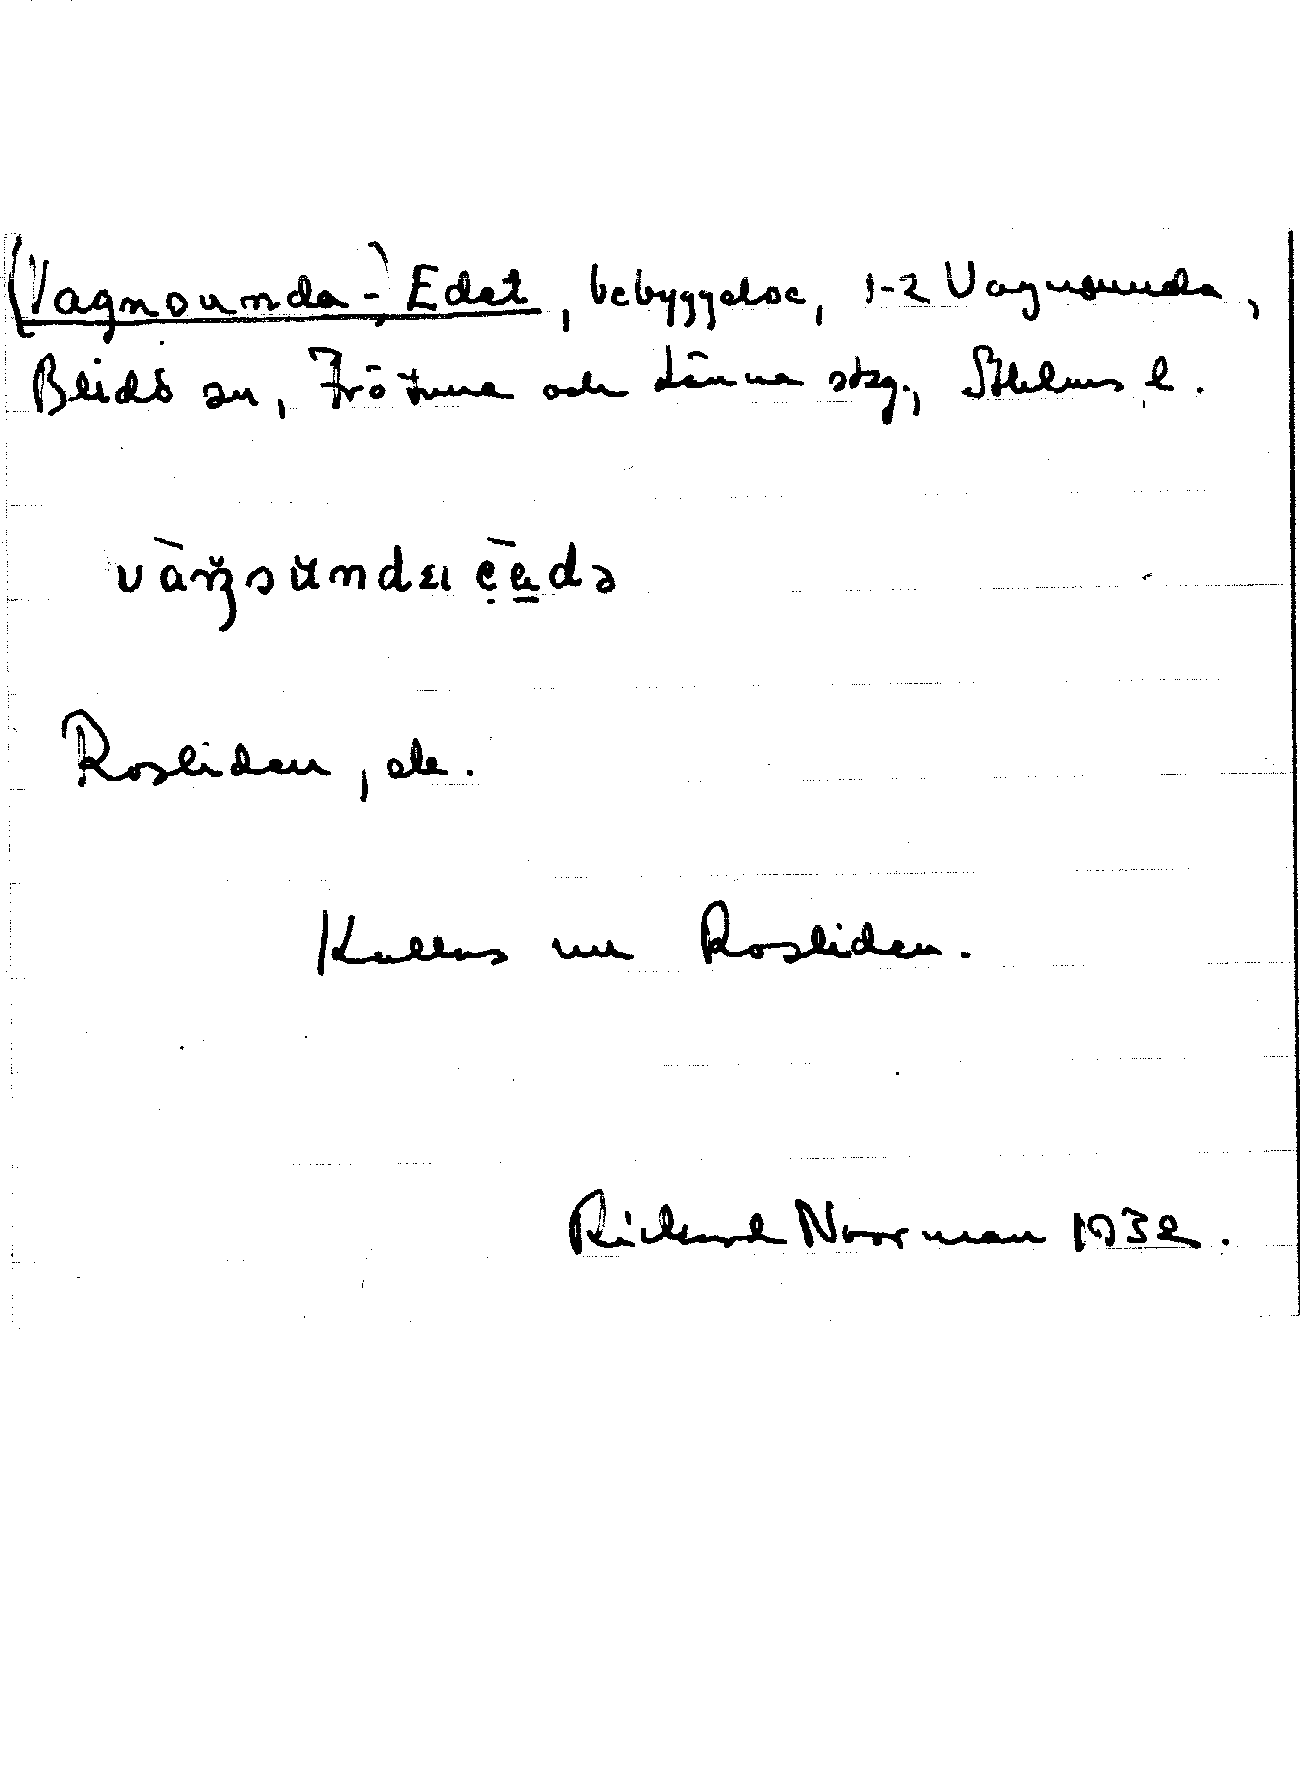 (Vagnsunda-) Edet, bebyggelse, 1-2 Vagnsunda,
Blidö sn, Frötuna och Länna skg., Sthlms l.
vàŋsundaɩ èedə
Rosliden, ek.
Kallas nu Rosliden.
Rickard Noorman 1932.